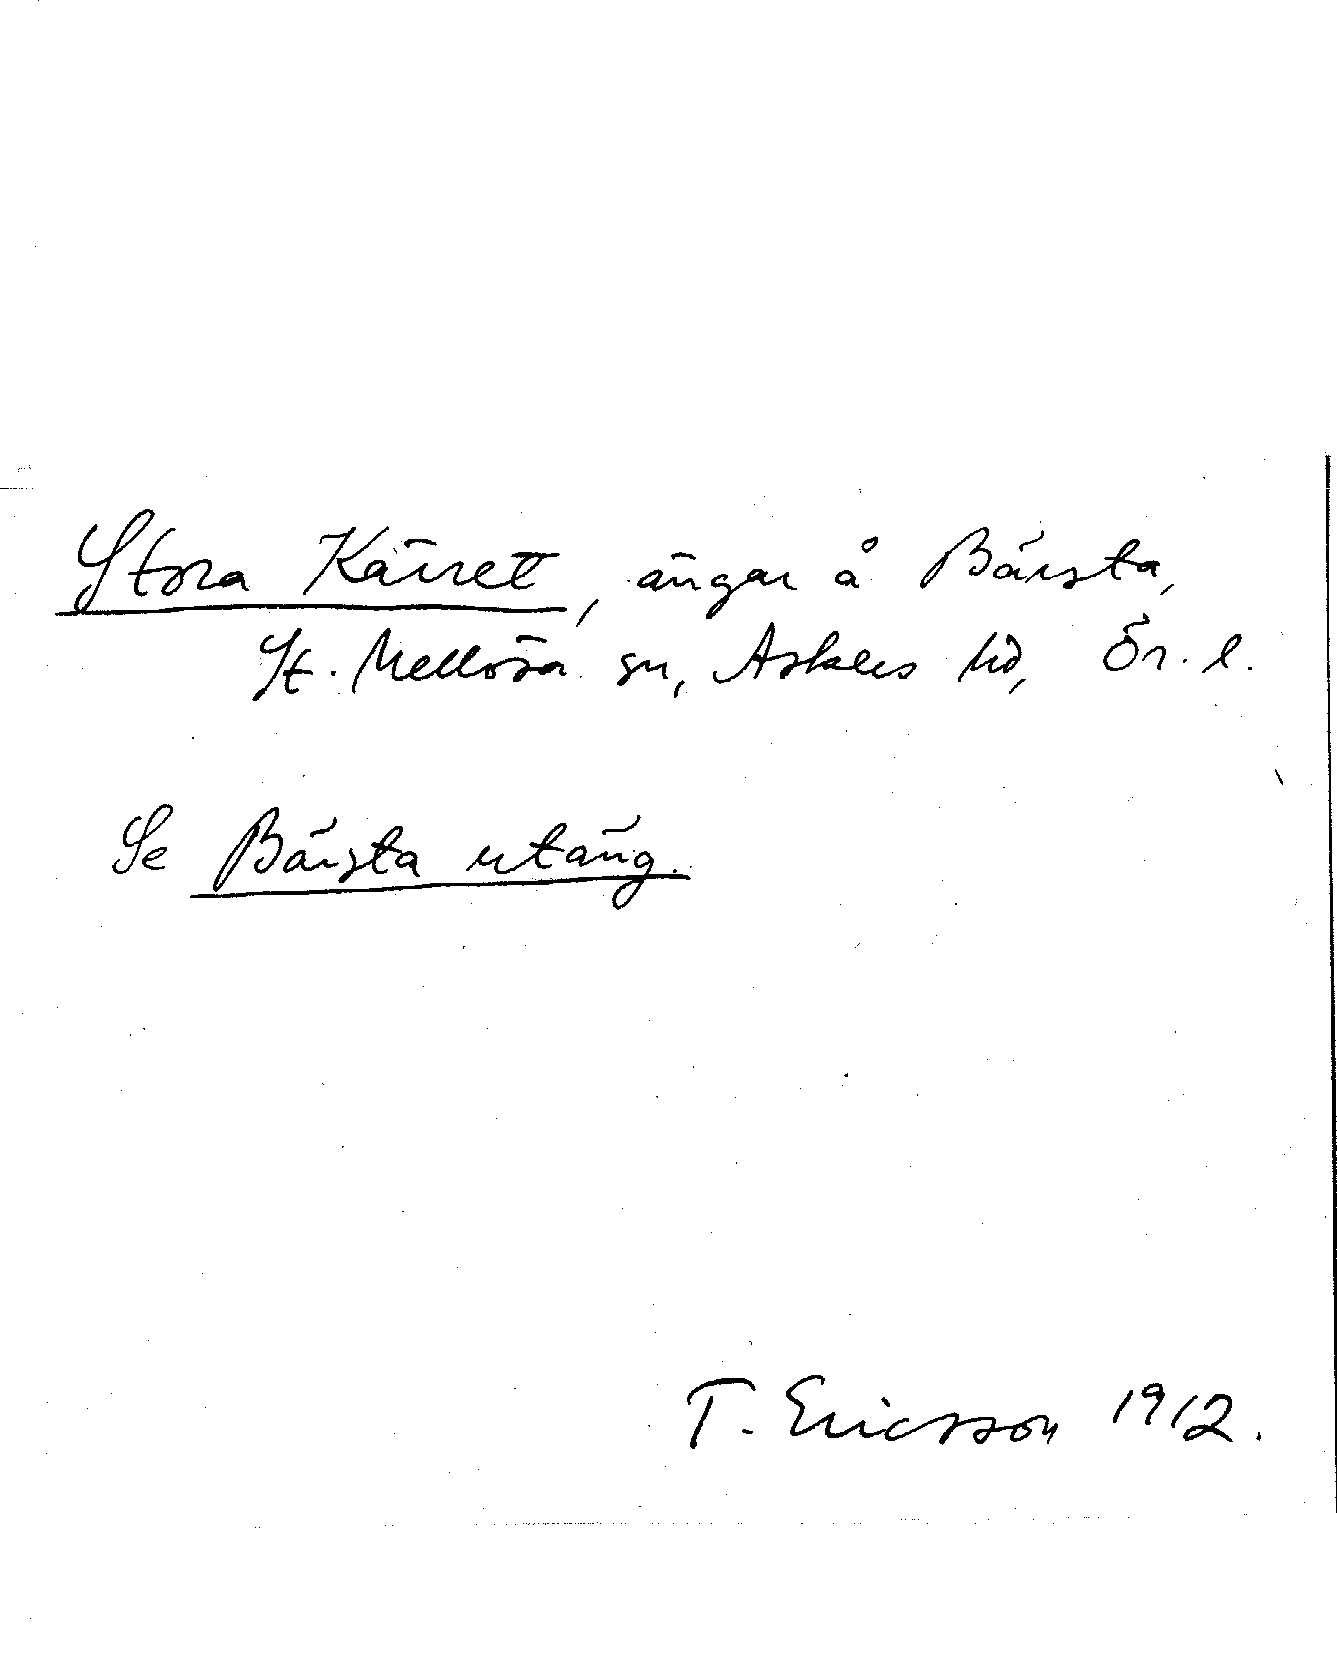 Stora Kärret, ängar å Bärsta,
St. Mellösa sn, Askers hd, Ör. l.
Se Bärsta utäng.
T. Ericsson 1912.